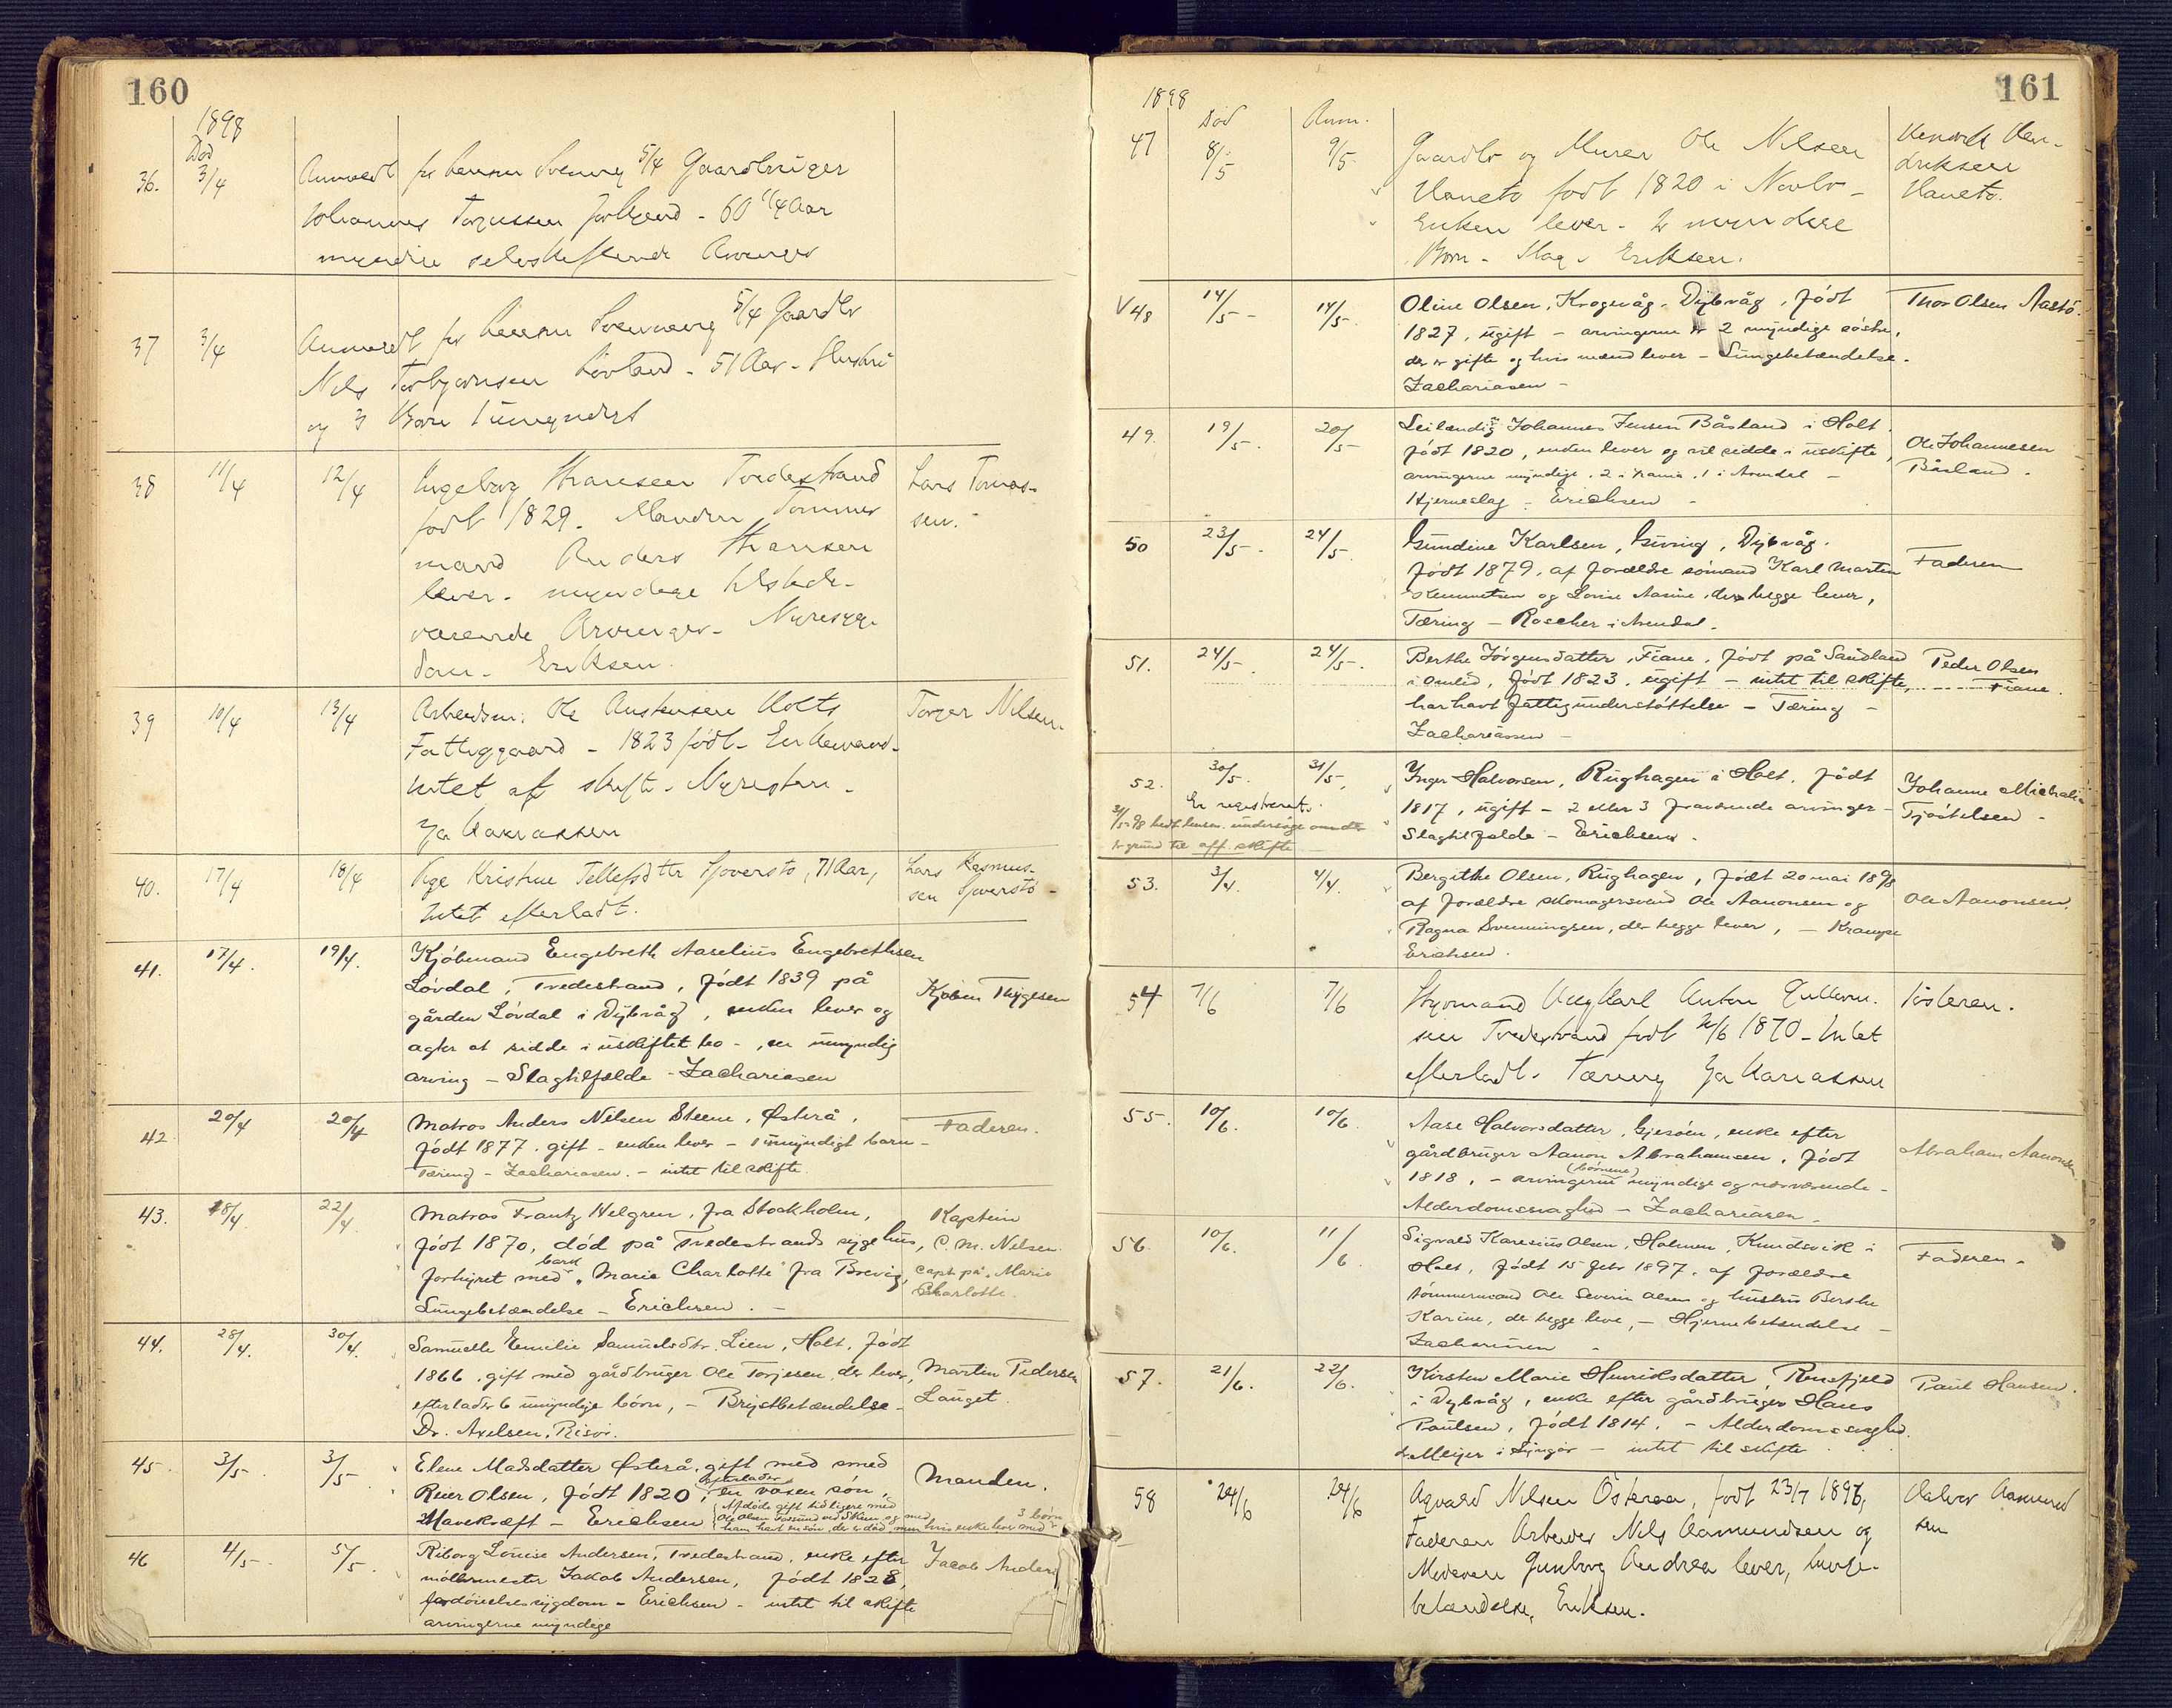 160
1898
Død
36. 3/4 Anmeldt fra Lensm Svenning 5/4 Gaardbruger
Johannes Torjussen - 60 1/4 Aar
myndige selvskiftende Arvinger
37 3/4 Anmeldt fra Lensm Svenning 5/4 Gaardbr
Nils Torbjørnsen Løvland - 51 Aar - Hustru
og 3 Børn 1 umyndigt
38 11/4 12/4 Ingeborg Hansen Tvedestrand
født 1829. Manden Tømmer
mand Anders Hansen
lever - myndige tilstede-
værende Arvinger - Nyresyg-
dom - Eriksen.
Lars Tomas-
sen.
39 10/4 13/4 Arbeidsm. Ole Austensen Holts
Fattiggaard - 1823 født - Enkemand -
Intet at skifte - Nyresten -
Zakariassen
Torjer Nilsen
40. 17/4 18/4 Pige Kristine Tellefsdtr Sjoverstø, 71 Aar,
Intet efterladt.
Lars Rasmus-
sen Sjverstø -
41. 17/4. 19/4. Kjøbmand Engebreth Aaselius Engebrethsen
Løvdal, Tvedestrand, født 1839 på
gården Løvdal i Dybvåg, enken lever og
agter at sidde i uskiftet bo -, en umyndig
arving - Slagtilfælde - Zachariasen
Kjøbm Thygesen
42 20/4 20/4 Matros Anders Nilsen Steene, Østerå,
født 1877. gift - enken lever - 1 umyndigt barn -
Tæring - Zachariasen. - intet til skifte.
Faderen.
43. 18/4. 22/4. Matros Frantz Helgren, fra Stockholm,
født 1870, død på Tvedestrands sygehus,
forhyret med bark "Marie Charlotte" fra Brevig,
Lungebetændelse - Erichsen. -
Kaptein
C. M. Nilsen
capt. på "Marie
Charlotte.
44. 28/4. 30/4. Samuelle Emilie Samuelsdtr. Lien, Holt, født
1866, gift med gårdbruger Ole Torjesen, der lever,
efterlader 6 umyndige børn, - Brystbetændelse -
Dr. Axelsen, Risør.
Martin Pedersen
Lauget.
45. 3/5. 3/5. Elene Madsdatter Østerå, gift med smed
Reier Olsen, født 1820, efterlader en voxen søn,
Mavekræft - Erichsen {Afdøde gift tidligere med
Ole Olsen Fossund ved Skien og med
ham havt en søn, der er død, men hvis enke lever med 3 børn
Manden.
46 4/5. 5/5. Riborg Louise Andersen, Tvedestrand, enke efter
møllermester Jakob Andersen, født 1828,
fordøielsessygdom - Erichsen - intet til skifte
arvingerne myndege
Jacob Anders
161
1898
Død Anm.
47 8/5 9/5. Gaardbr og Murer Ole Nilsen
Haneto født 1820 i
Enken lever - myndige
Børn - Slag - Eriksen.
Henrik Hen-
driksen
Haneto.
V 48 14/5 - 14/5. Oline Olsen, Krogevåg, Dybvåg, født
1827, ugift - arvingerne er 2 myndige søstre,
der er gifte og hvis mænd lever - Lungebetændelse.
Zachariasen -
Thor Olsen Aastø.
49. 19/5. 20/5 Leilænding Johannes Jensen Båsland i Holt
født 1820, enken lever og vil sidde i uskifte,
arvingerne myndige, 2 i , 1 i Arendal -
Hjerneslag - Erichsen -
Ole Johannesen
Båsland.
50 23/5. 24/5. Gundine Karlsen, Giving, Dybvåg.
født 1879, af forældre sømand Karl Martin
og Lovise Aasine, der begge lever,
Tæring - Roscher i Arendal.
Faderen
51. 24/5. 24/5. Berthe Jørgensdatter, Fiane, født på Sandland
i Omlid, født 1823, ugift - intet til skifte,
har havt fattigunderstøttelse - Tæring -
Zachariassen -
Peder Olsen
Fiane.
52. 30/5. 31/5. Inger Halvorsen, Rughagen i Holt, født
1817, ugift - 2 eller 3 fraværende arvinger -
Slagtilfælde - Erichsen.
Er registreret.
31/5-98 bedt lensm. undersøge om der
er grund til off. skifte
Johanne Michalie
Tjøstelsen -
53. 3/4. 4/4. Bergithe Olsen, Rughagen, født 20 mai 1898
af forældre skomagersvend Ole Aanonsen og
Ragna Svenningsen, der begge lever, - Krampe
Erichsen.
Ole Aanonsen.
54 7/6 7/6 Styrmand Karl Anton Gullorm-
sen Tvedestrand født 2/6 1870 - Intet
efterladt. Tæring Zakariassen
Søsteren.
55. 10/6. 10/6. Aase Halvorsdatter, Gjesøen, enke efter
gårdbruger Aanon Abrahamsen, født
1818, - arvingerne (børnene) myndige og nærværende -
Alderdomssvaghed - Zachariasen.
Abraham Aanonsen
56. 10/6. 11/6. Sigvald Karesius Olsen, Holmen, Kundsvik i
Holt, født 15 febr 1897, af forældre
tømmermand Ole Severin Olsen og hustru Berthe
Karine, de begge leve, - Hjernebetændelse -
Zachariasen -
Faderen -
57. 21/6. 22/6. Kirsten Marie Henriksdatter, Rensfjeld
i Dybvåg, enke efter gårdbruger Hans
Paulsen, født 1814. - Alderdomssvaghed.
dr. Meyer i Lyngør - intet til skifte
Paul Hansen.
58 24/6 24/6 Agvald Nilsen Østeraa, født 23/7 1896,
Faderen Arbeider Nils Aamundsen og
Moderen Gunborg Andrea lever, Lunge-
betændelse, Eriksen.
Halvor Aamund
sen